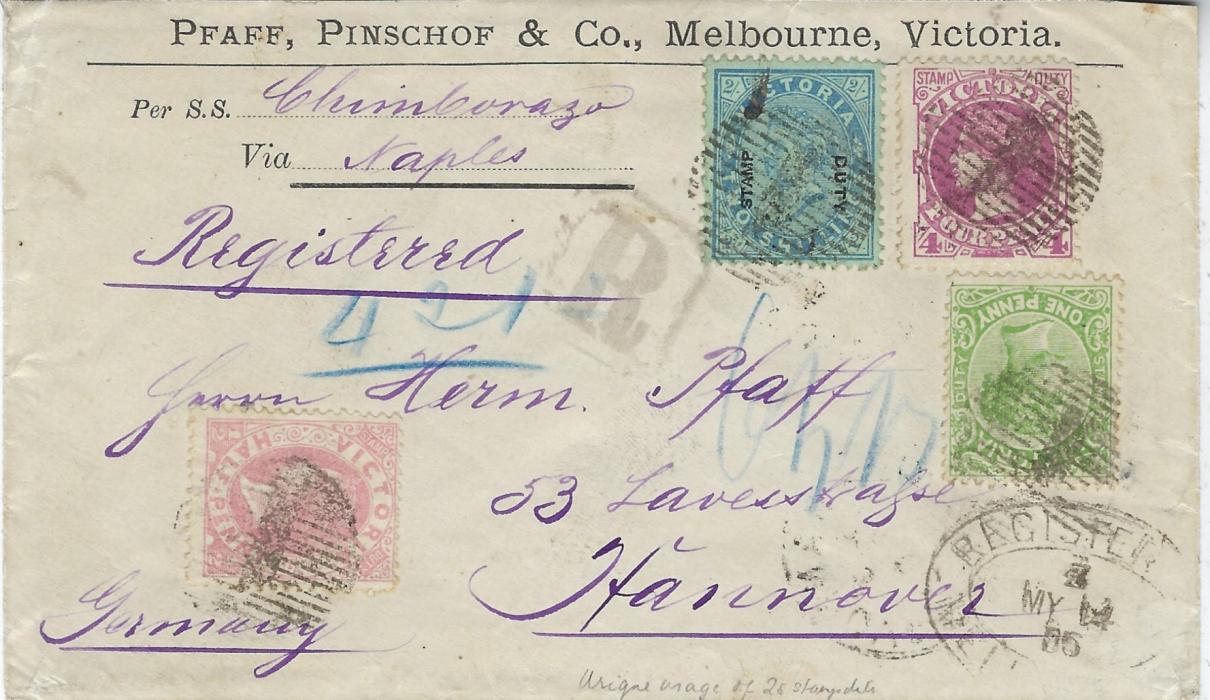 PFAFF, PINSCHOF & Co., Melbourne, Victoria.
Per S.S. Chimborazo
Via Naples
Registered
R
421
Herrn Herm. Pfaff
53 Lavesstraße
Hannover
Germany
2/ VICTORIA 2/
STAMP DUTY
STAMP DUTY
VICTORIA
4 FOUR 4
ONE PENNY
DUTY
VICTOR
HALF
REGISTER
MY 14
usage of 2s stamp duty